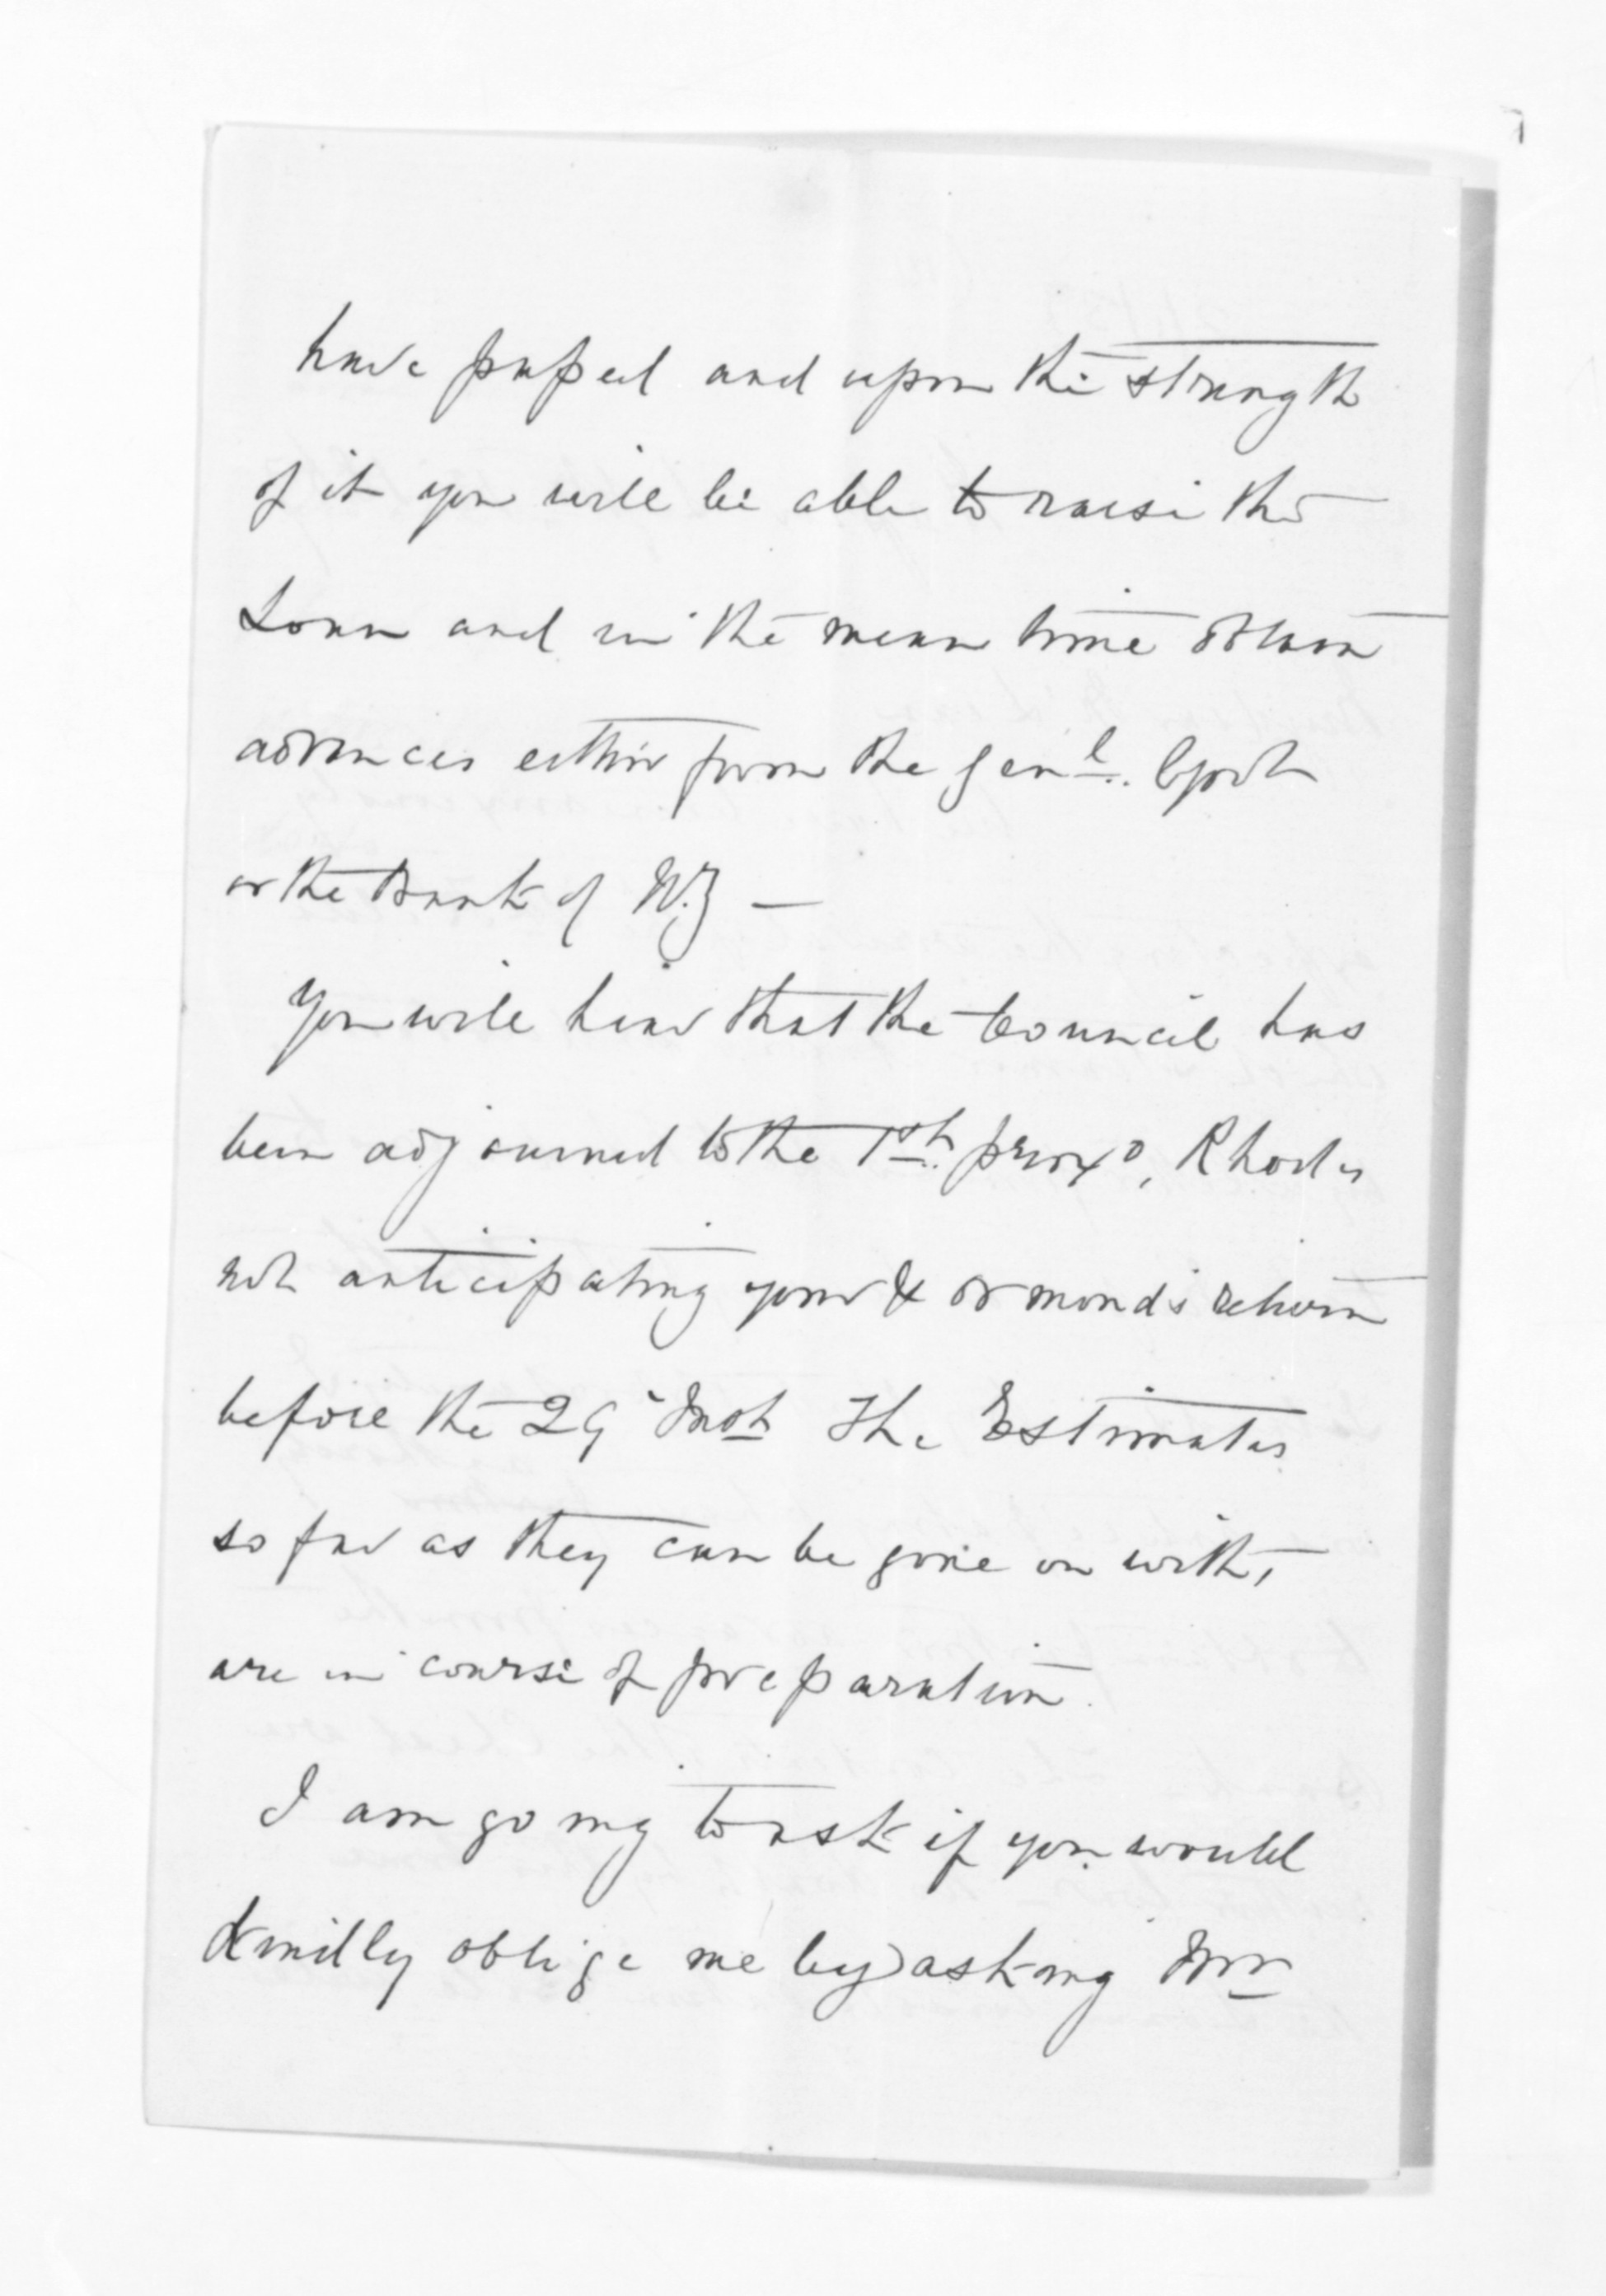 have passed and upon the strength
of it you will be able to raise the
Loan and in the mean time obtain
advances either from the Genl. Govt
or the Bank of N.Z —
You will hear that the Council has
been adjourned to the 1st. proxo, Rhodes
not anticipating your & Ormond's return
before the 29 Inst The Estimates
so far as they can be gone on with,
are in course of preparation.
I am going to ask if you would
kindly oblige me by asking Mr